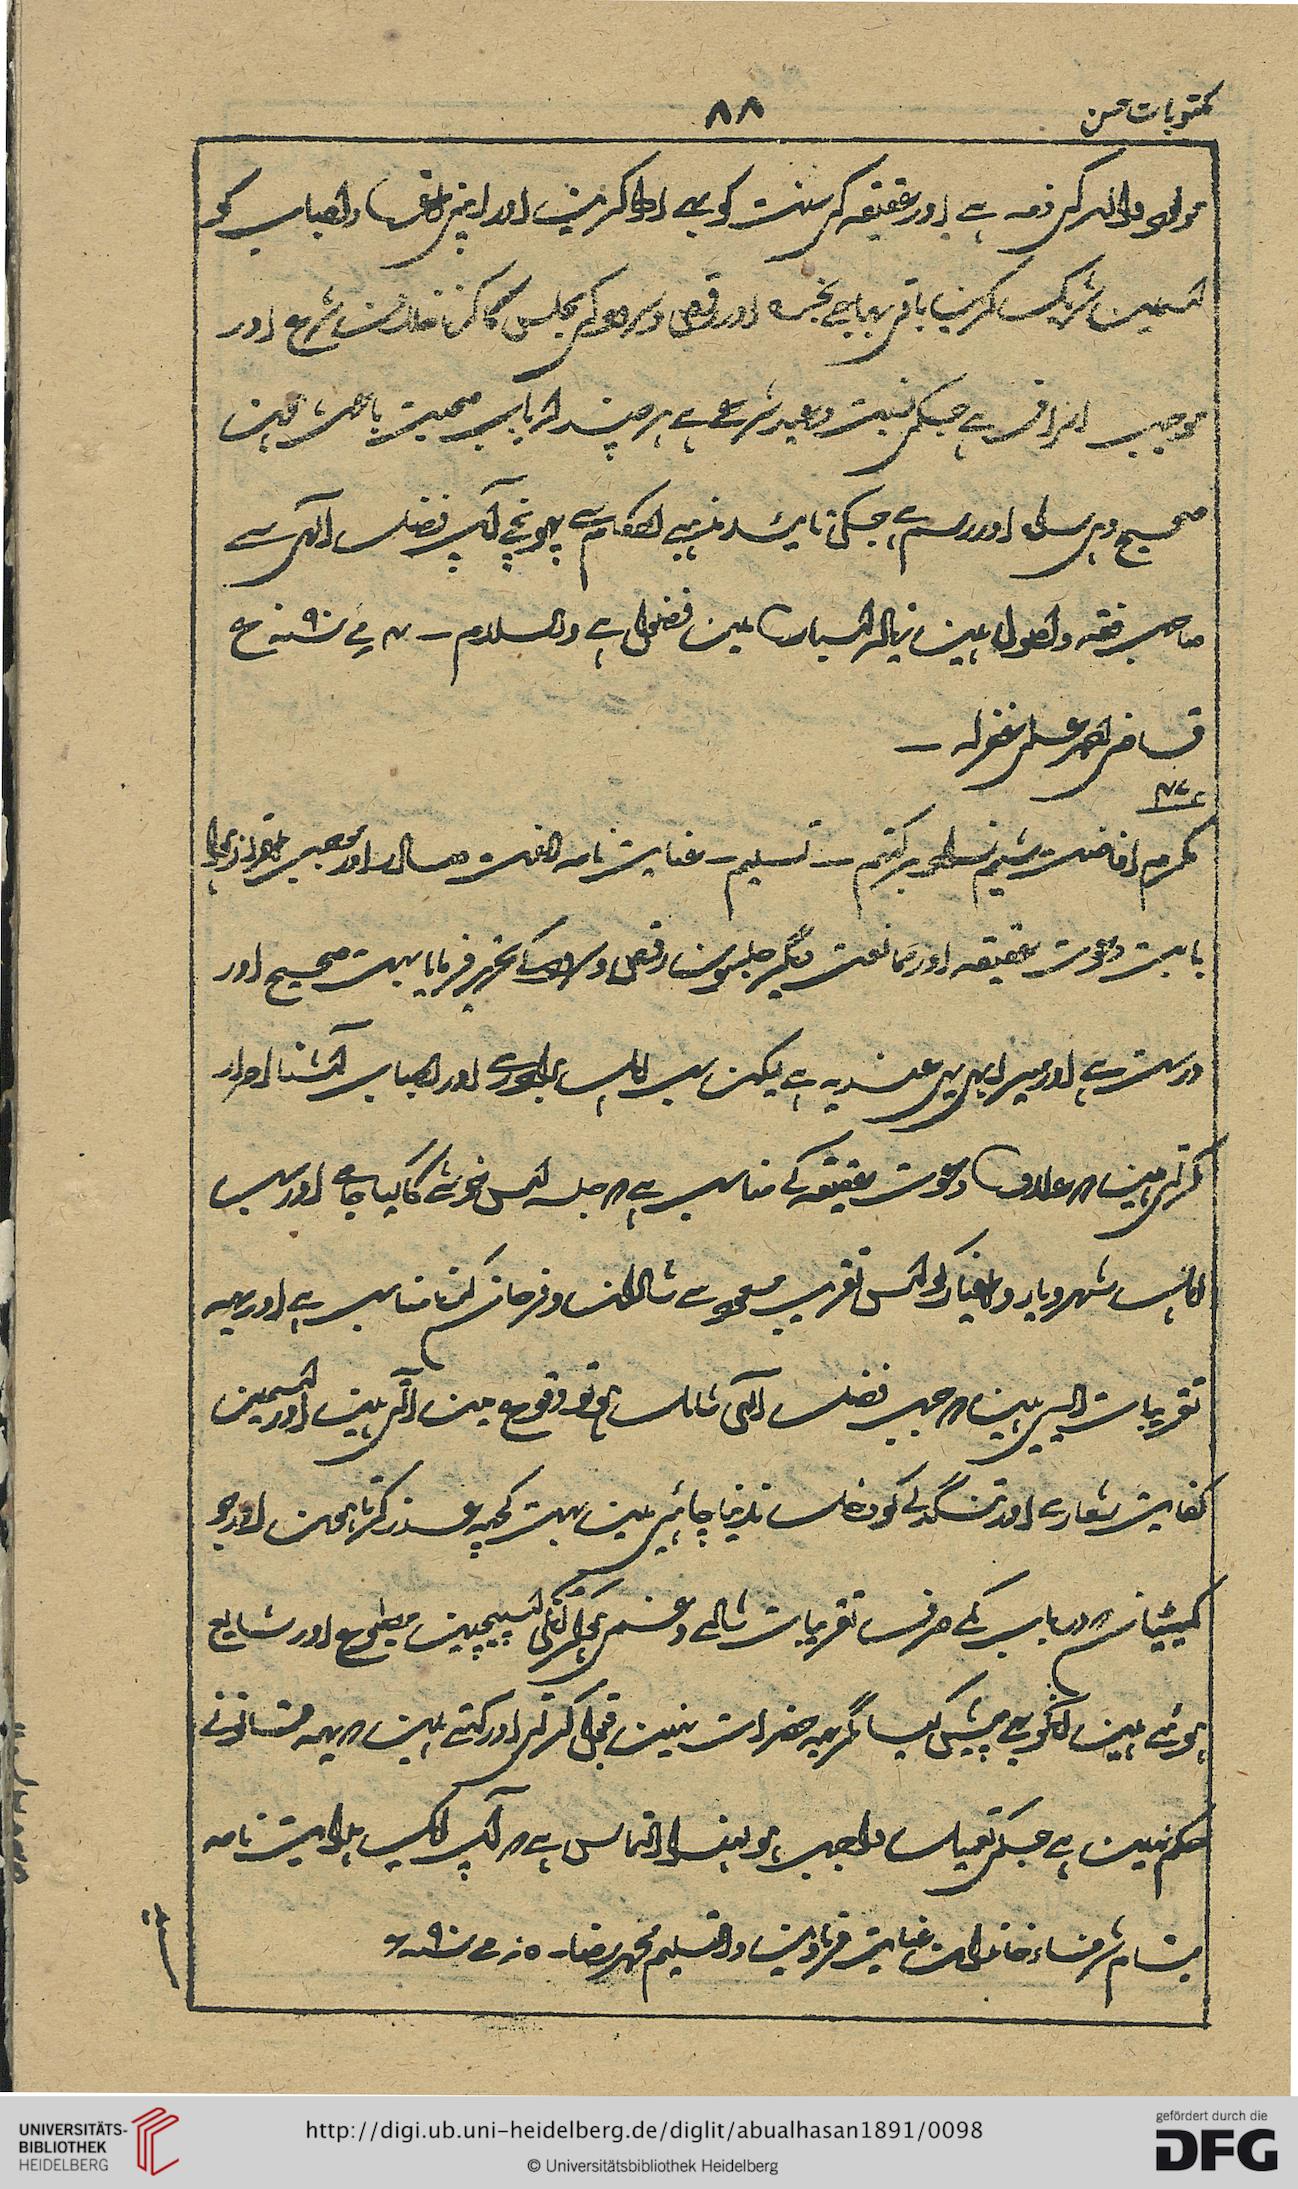 مکتوبات حسن
۸۸
مولود والد کی ذمہ ہے اور عقیقہ کی سنت کو بھی ادا کرین اور اپنی واحباب کو
اسمین شریک کرین باقی اور رقص و سرود کی مجلس کا کرنا خلاف شرع اور
موجب اسراف ہے جسکی نسبت وعید شرعی ہے ہر چند ارباب صحبت باعث ہین
صحیح وہی اور رسم ہے جسکی تائید مذہبی احکام سے پہونچے آپ فضل الٰہی سے
صاحب فقہ و اصول ہین زیادہ اسبارہ مین فضول ہے والسلام ـ مئی سنہ ۹۰ ع
قاضی احمد علی عفرلہ ـ
مکرم ـ تسلیم ـ عنایت نامہ اور
بابت دعوت عقیقہ اور ممانعت دیگر جلسون رقص و سرود کے تحریر فرمایا بہت صحیح اور
درست ہے اور میرا بھی یہی عندیہ ہے لیکن سب اہل برادری اور احباب آشنا اصرار
کرتی ہین علاوہ دعوت عقیقہ کے مناسب ہے جلسہ اس خوشی کا کیا جاے اور سب
اہل شہر و دیار و اغیار کو اس تقریب سے شادان و فرحان کرنا مناسب ہے اور یہہ
تقریبات ایسی ہین جب فضل الٰہی شامل ہو تو وقوع مین آتی ہین اور اسمین
کفایت شعاری اور تنگدلی کو دخل ندینا چاہئی مین بہت کچہہ عذر کرتا ہون اور جو
کمیٹیان درباب کمی صرف تقریبات شادی و غمی ہوکر انکی اسپیچین مطبوع اور شایع
ہوئی ہین انکو بھی پیش کیا مگر یہہ حضرات نہین قبول کرتی اور کہتے ہین یہہ قانونی
حکم نہین ہے جسکی تعمیل واجب ہو لہذا التماس ہے آپ ایک ہدایت نامہ
بنام شرفاء خاندان عنایت فرماوین والتسلیم محمد رضا ـ ۵ مئی سنہ ۹۰ ع
UNIVERSITÄTS-
BIBLIOTHEK
HEIDELBERG
http://digi.ub.uni-heidelberg.de/diglit/abualhasan1891/0098
© Universitätsbibliothek Heidelberg
gefördert durch die
DFG